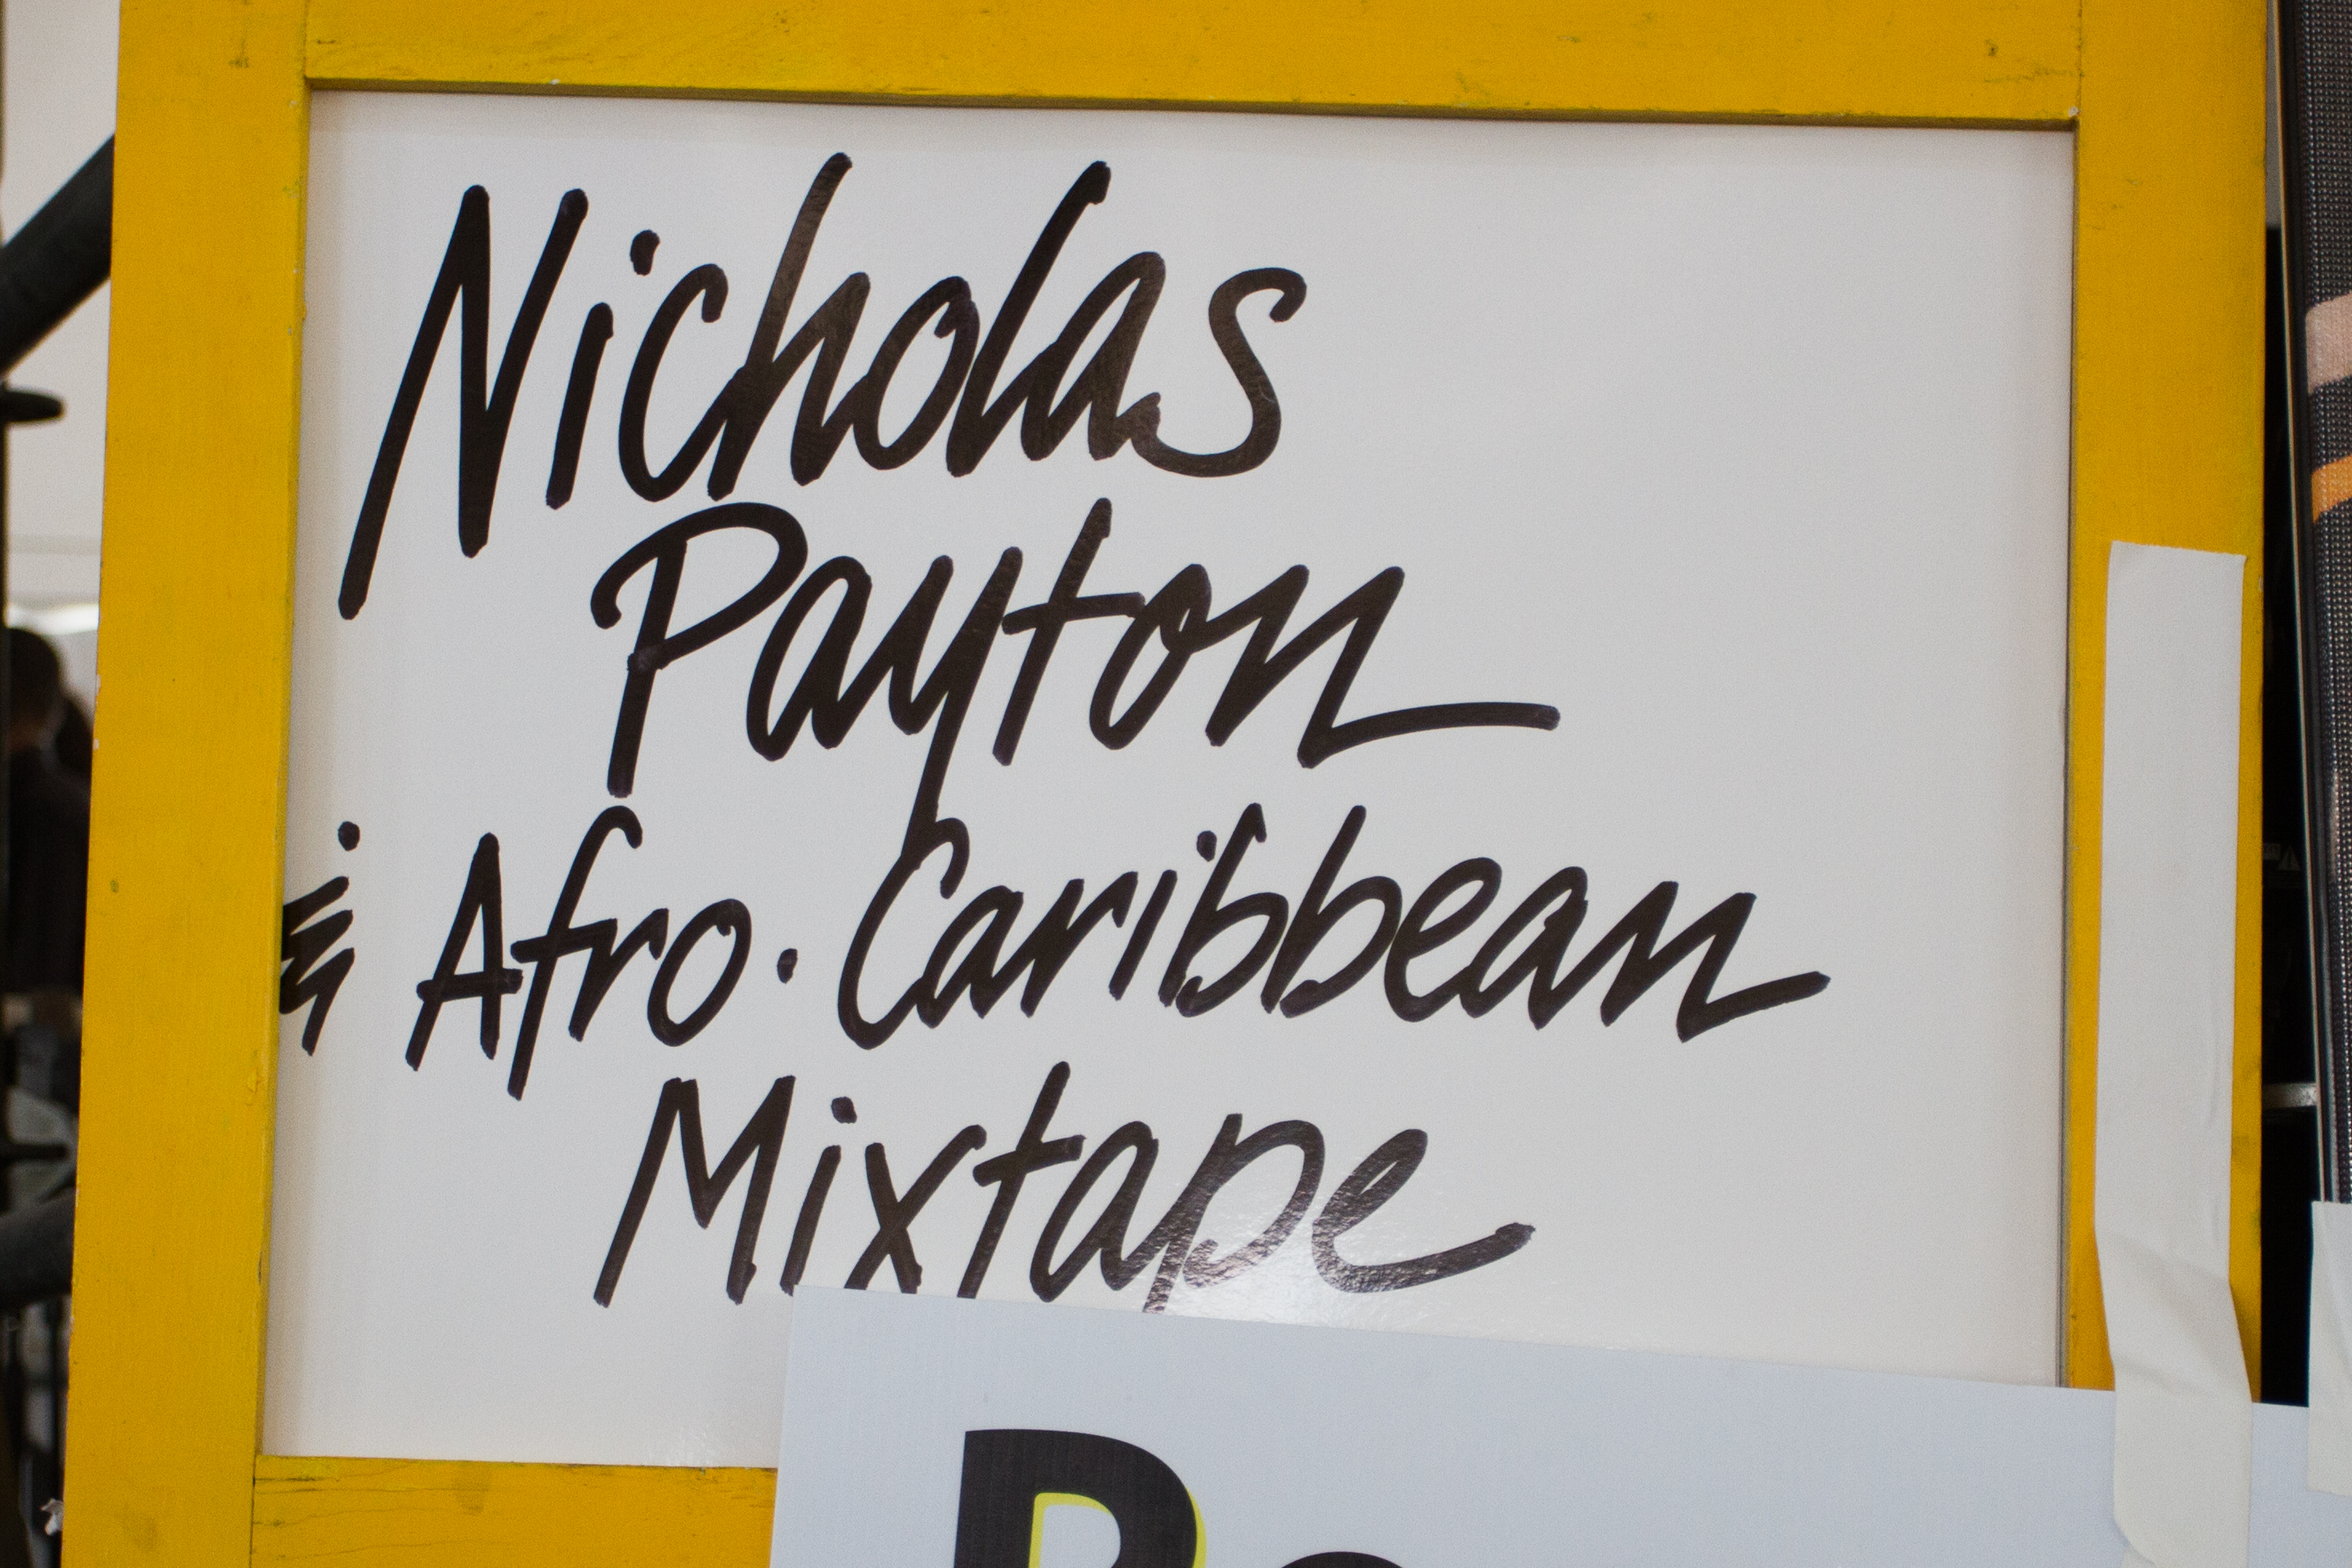 Nicholas
Payton
& Afro·Caribbean
Mixtape